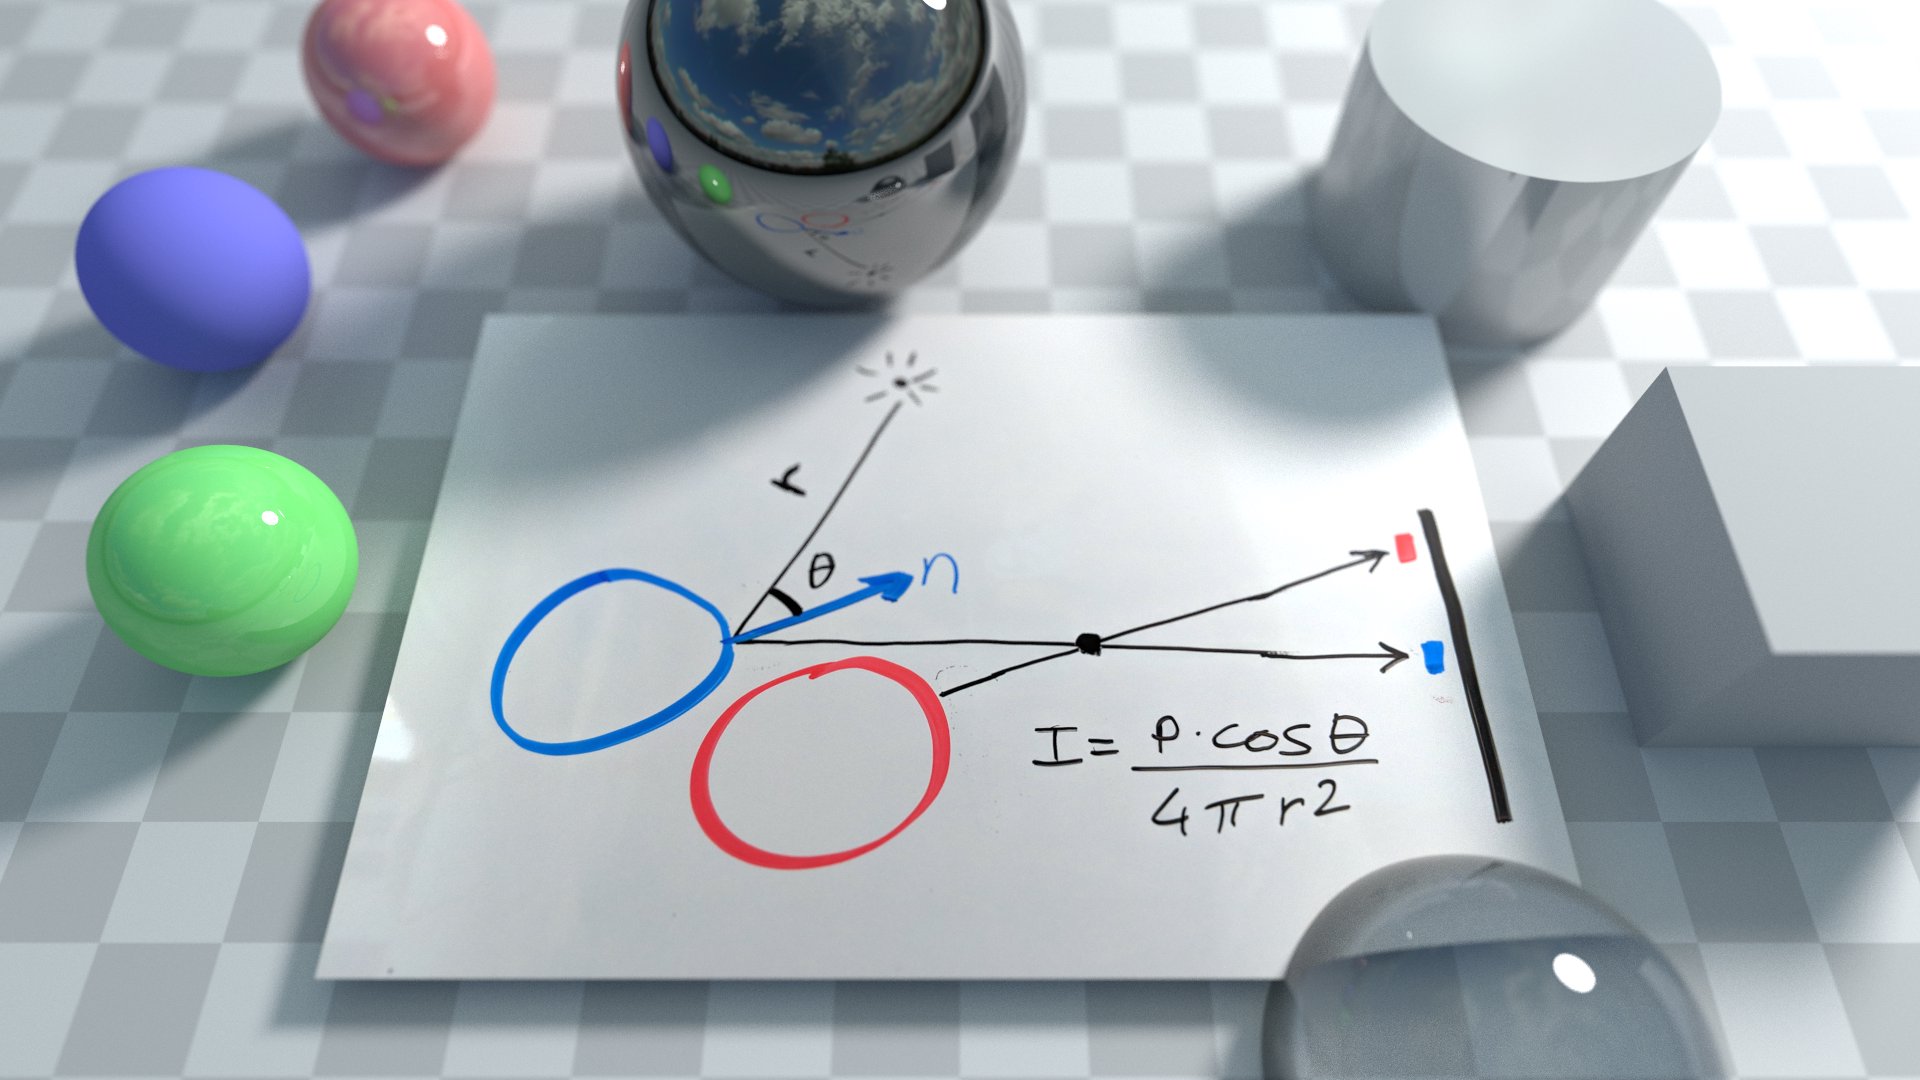 r
θ
n
I = P·cosθ
4πr2